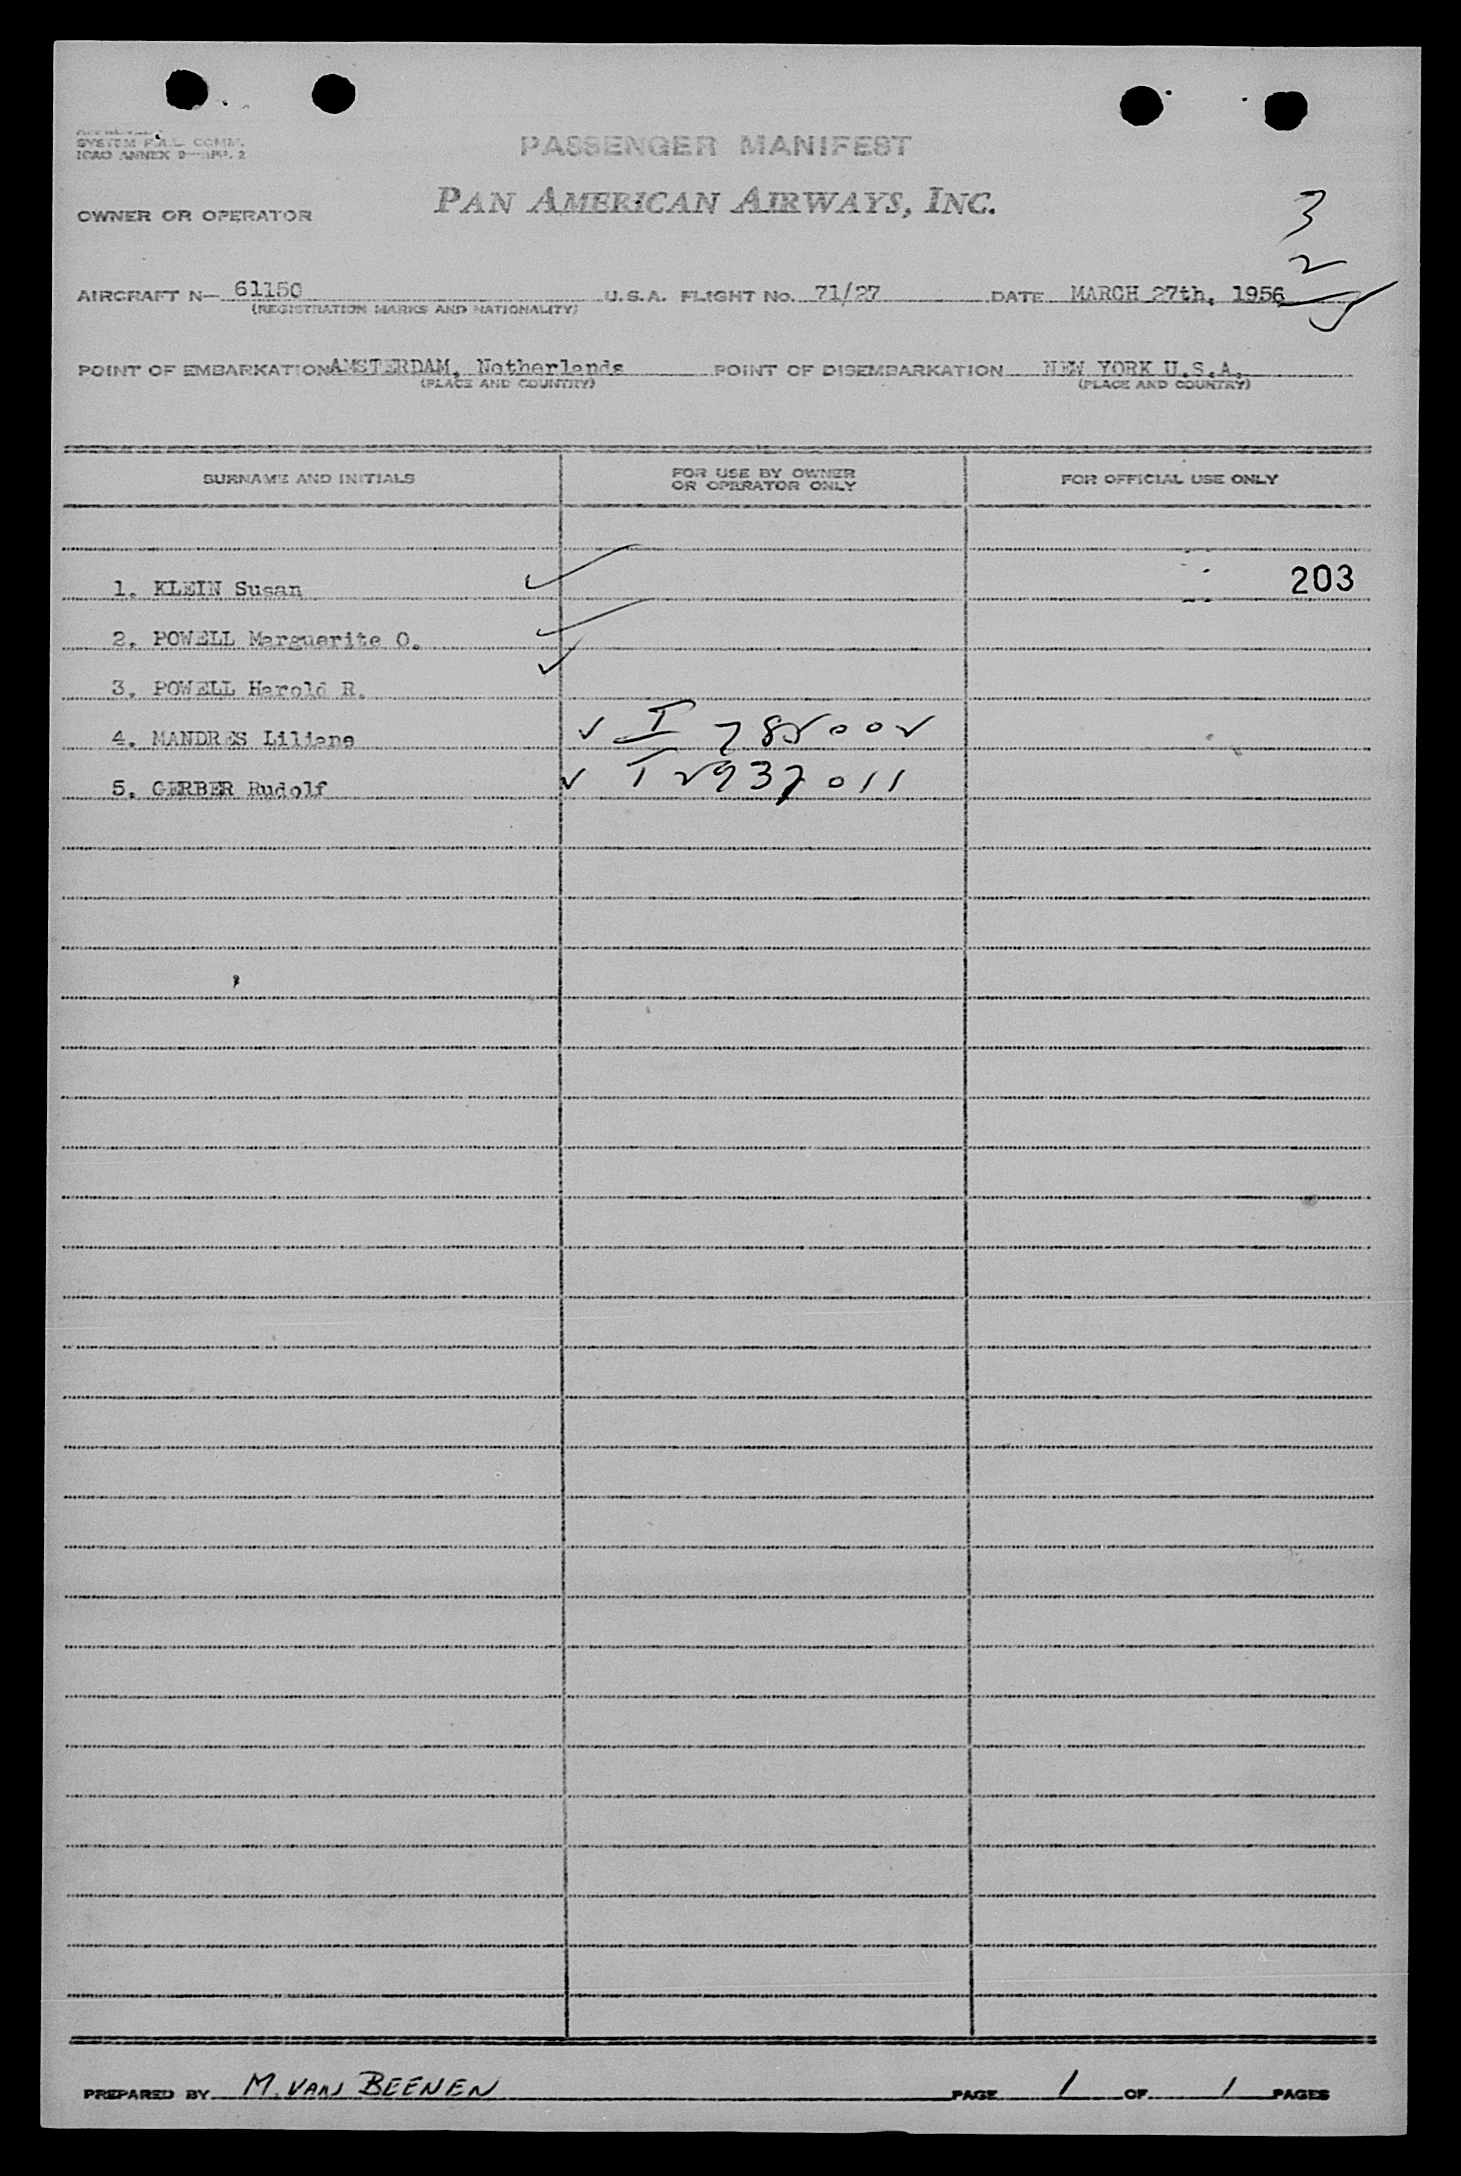 SYSTEM F.A.L. COMM.
ICAO ANNEX 9—APP. 2
PASSENGER MANIFEST
OWNER OR OPERATOR PAN AMERICAN AIRWAYS, INC.
3
2
5
AIRCRAFT N— 61150 U.S.A. FLIGHT NO. 71/27 DATE MARCH 27th, 1956
(REGISTRATION MARKS AND NATIONALITY)
POINT OF EMBARKATION AMSTERDAM, Netherlands POINT OF DISEMBARKATION NEW YORK U.S.A.
(PLACE AND COUNTRY) (PLACE AND COUNTRY)
SURNAME AND INITIALS FOR USE BY OWNER OR OPERATOR ONLY FOR OFFICIAL USE ONLY
1. KLEIN Susan 203
2. POWELL Marguerite O.
3. POWELL Harold R.
4. MANDRES Liliane I 785002
5. GERBER Rudolf I 2937011
PREPARED BY M. VAN BEENEN PAGE 1 OF 1 PAGES